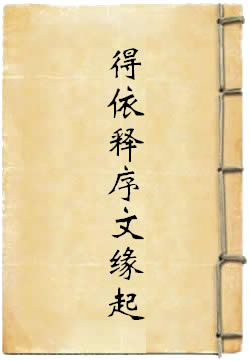 得依释序文缘起